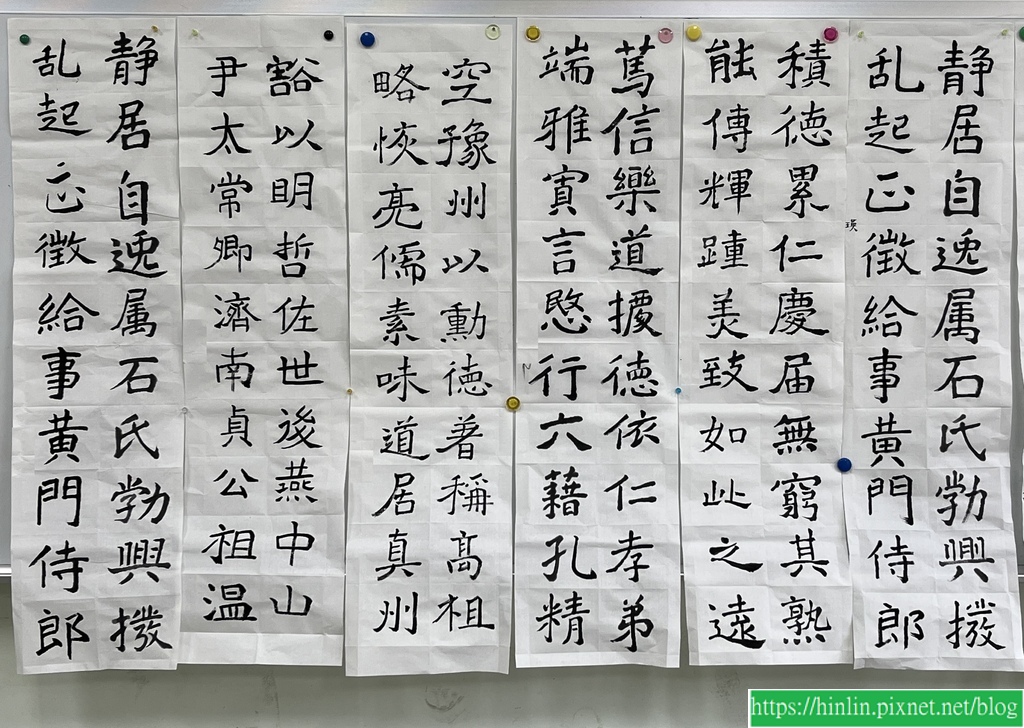 静居自逸属石氏勃興撥
乱起正徴給事黄門侍郎
積徳累仁慶届無窮其熟
能傳輝踵美致如此之遠
篤信樂道據徳依仁孝弟
端雅寡言愍行六藉孔精
空豫州以勳徳著稱髙祖
略恢亮儒素味道居真州
豁以明哲佐世後燕中山
尹太常卿濟南貞公祖温
静居自逸属石氏勃興撥
乱起正徴給事黄門侍郎
https://hinlin.pixnet.net/blog